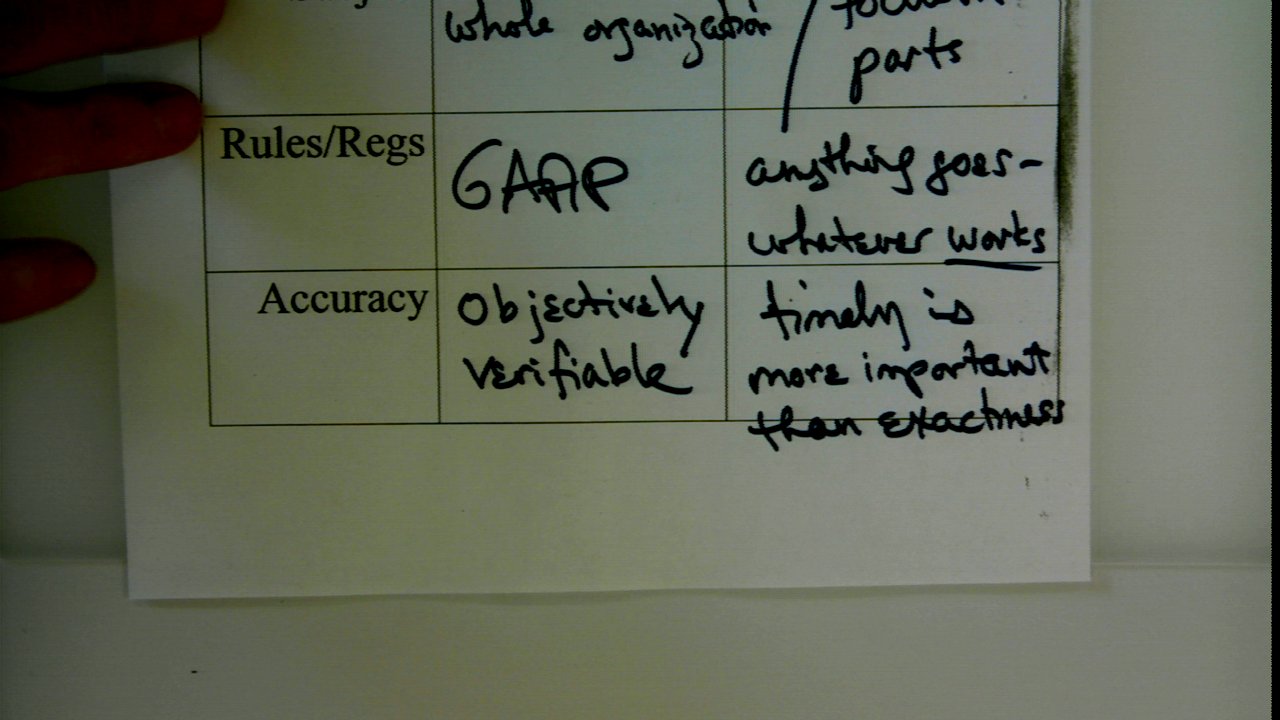 whole organization
parts
Rules/Regs
GAAP
anything goes-
whatever works
Accuracy
Objectively
verifiable
timely is
more important
than exactness